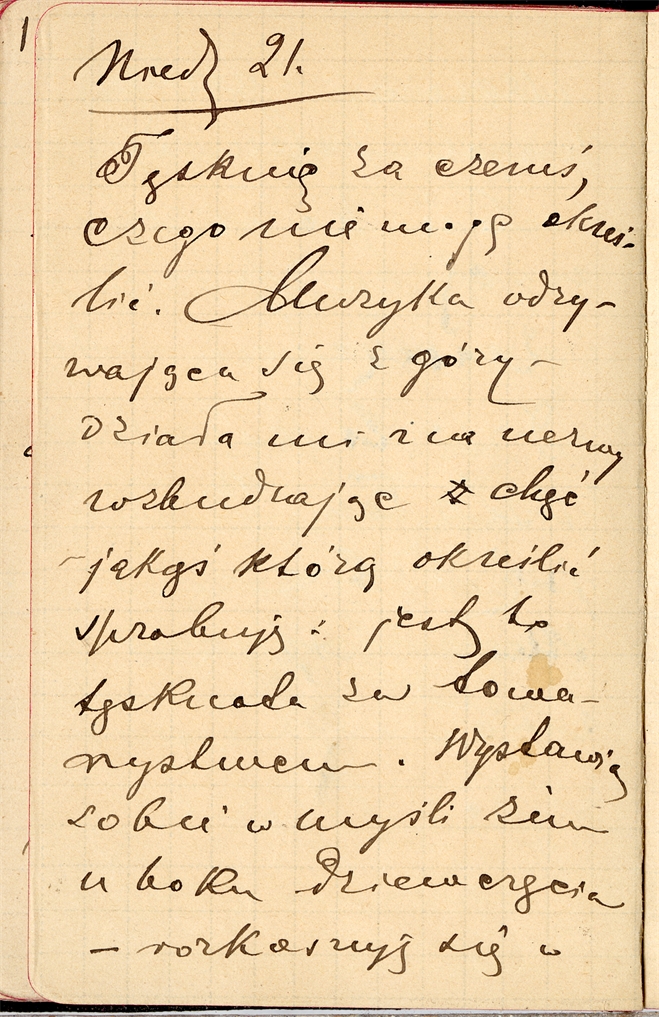 1
Niedz 21.
Tęsknię za czemś,
czego nie mogę okreś-
lić. Muzyka odzy-
wająca się z góry -
Działa mi na nerwy
rozbudzając chęć
jakąś którą określić
spróbuję: jest to
tęsknota za towa-
rzystwem. Wystawię
sobie w myśli żem
u boku dziewczęcia
- rozkoszuję się w